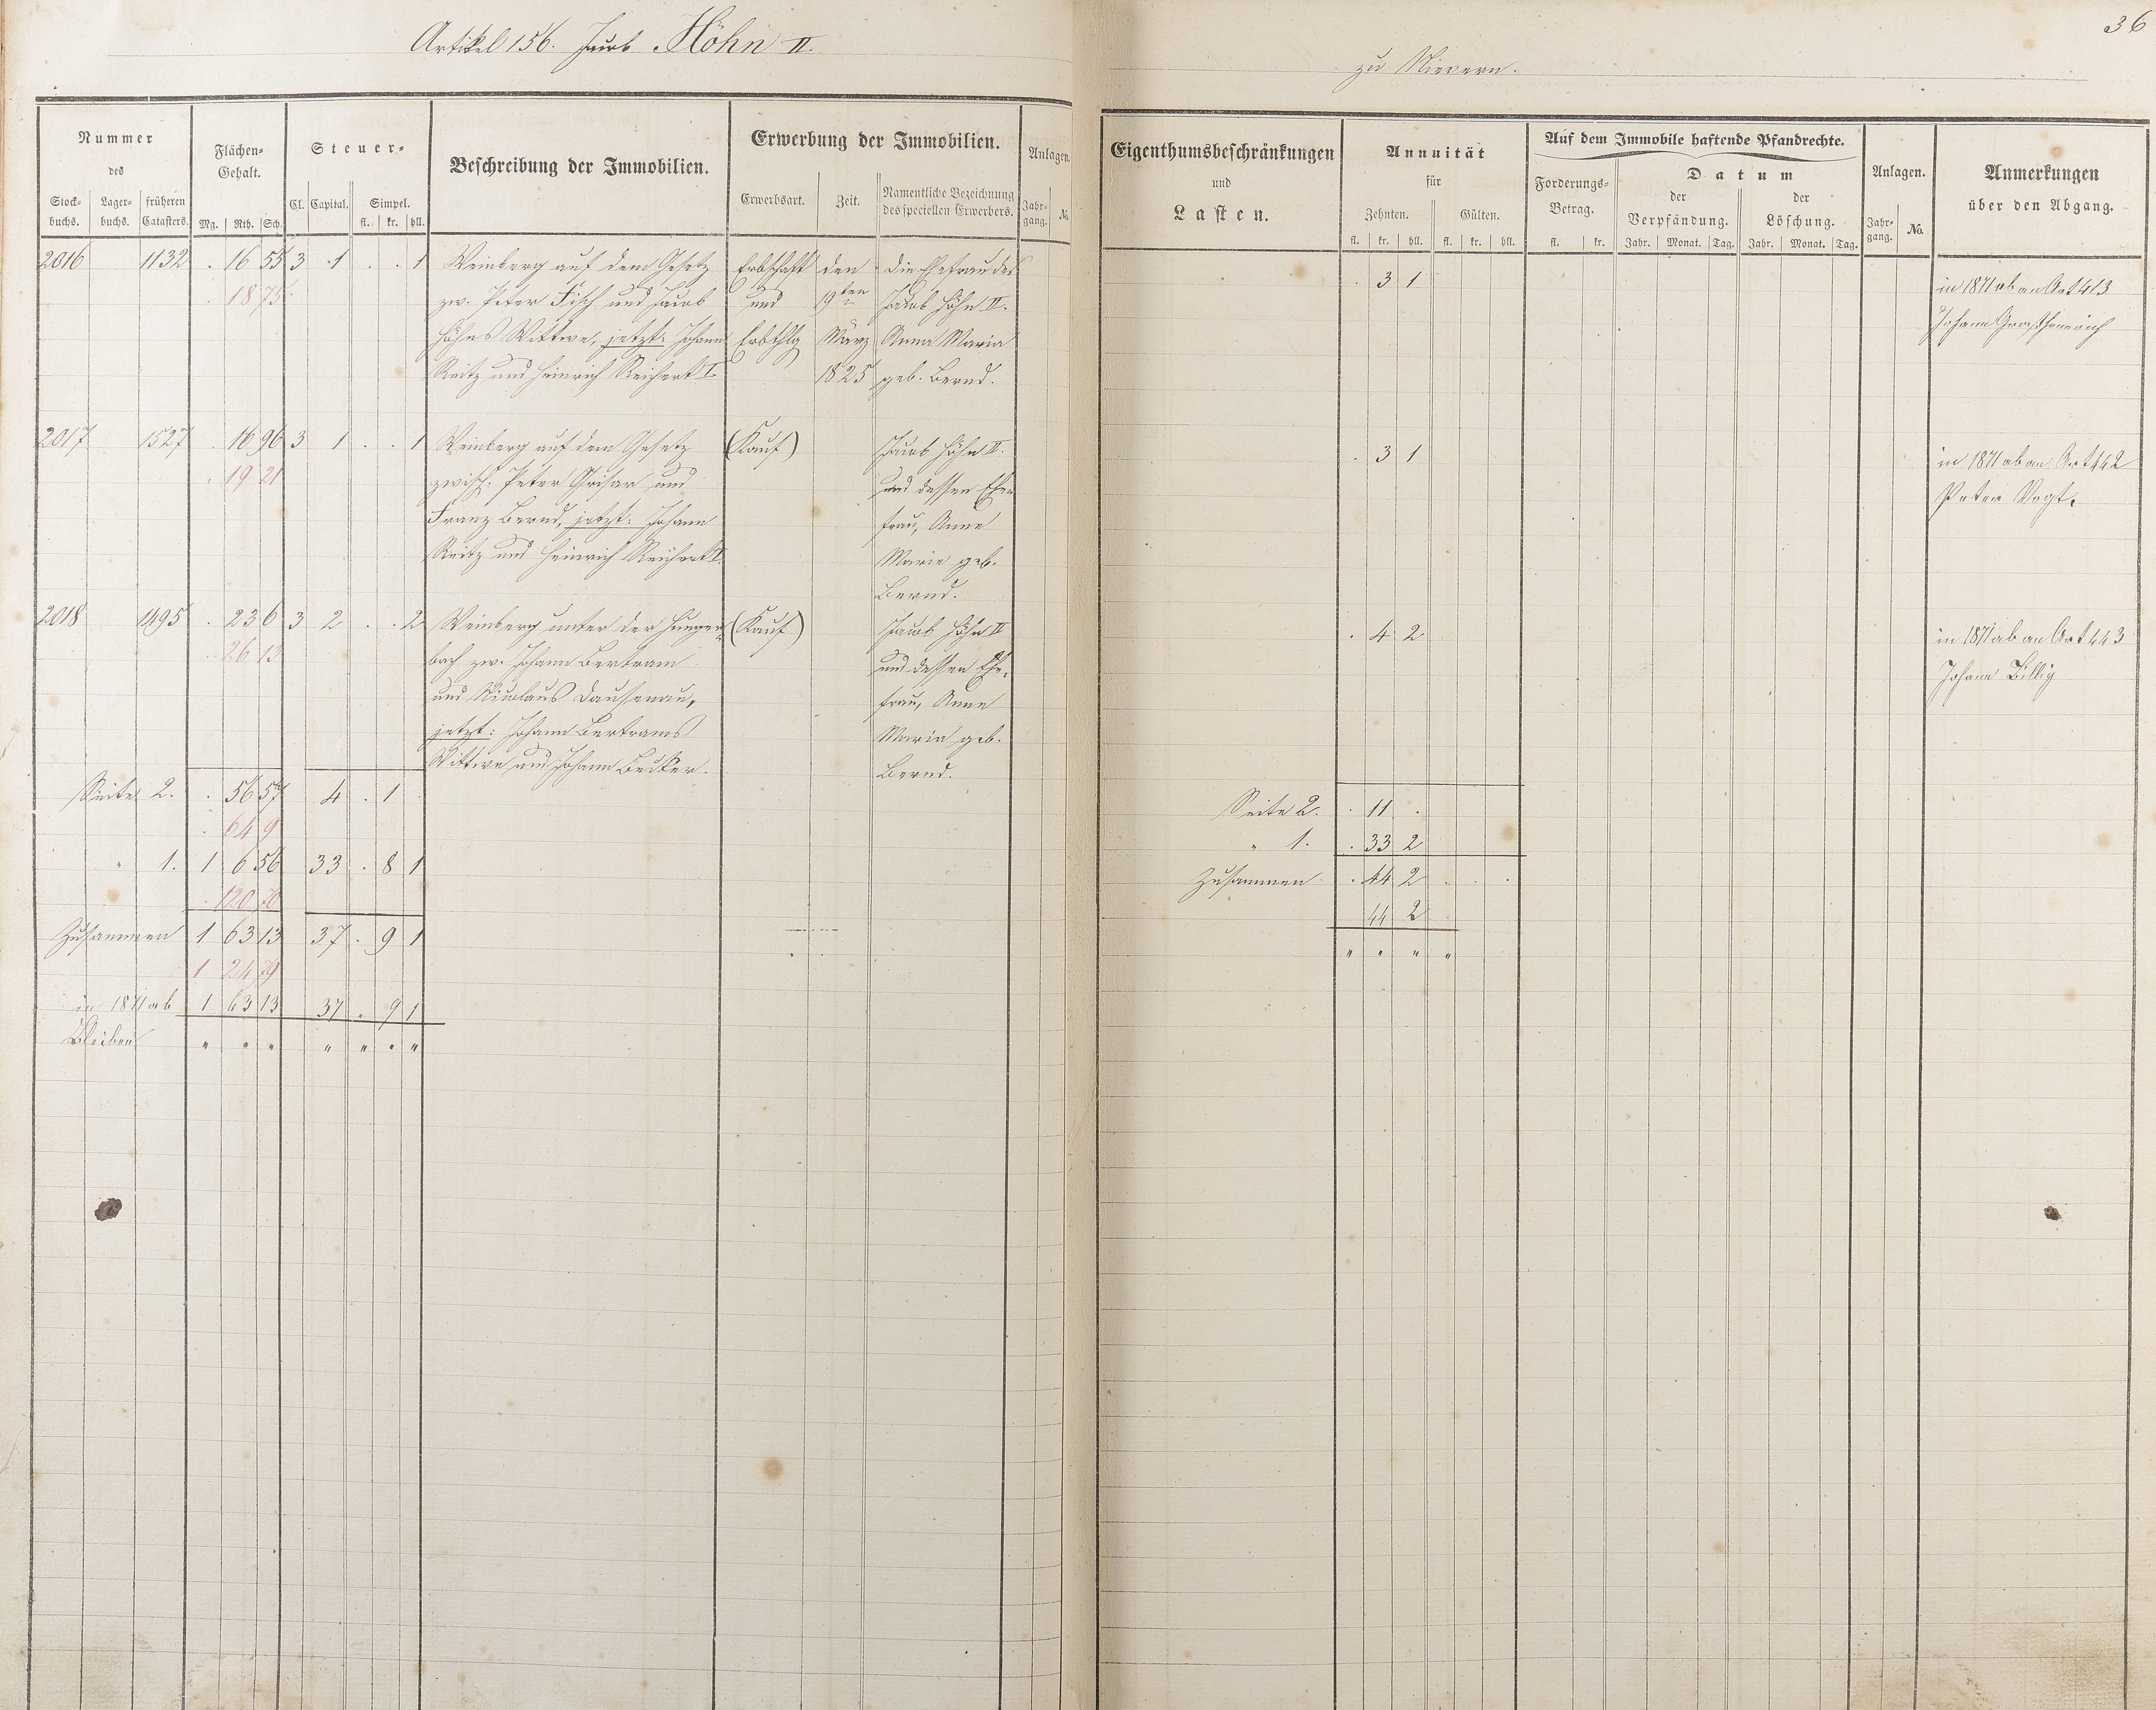 Artikel 156. Jacob Höhn II.
zu Nievern.
36
Nummer
des
Stock-
buchs.
Lager-
buchs.
früheren
Catasters.
Flächen-
Gehalt.
Mg. Rth. Sch.
Steuer-
Cl. Capital. Simpel.
fl. kr. hll.
Beschreibung der Immobilien.
Erwerbung der Immobilien.
Erwerbsart. Zeit.
Namentliche Bezeichnung
des speciellen Erwerbers.
Anlagen.
Jahr-
gang.
No.
Eigenthumsbeschränkungen
und
Lasten.
Annuität
für
Zehnten. Gülten.
fl. kr. hll. fl. kr. hll.
Auf dem Immobile haftende Pfandrechte.
Forderungs-
Betrag.
fl. kr.
Datum
der
Verpfändung.
Jahr. Monat. Tag.
der
Löschung.
Jahr. Monat. Tag.
Anlagen.
Jahr-
gang.
No.
Anmerkungen
über den Abgang.
2016 1132 . 16 55 3 1 . . 1 Weinberg auf dem Gesetz Erbschaft den die Ehefrau des
. 18 75 zw. Peter Fisch und Jacob und 19ten Jacob Höhn II.
Höhns Wittwe, jetzt: Johann Erbthlg März Anna Maria
Reitz und Heinrich Reichert I. 1825 geb. Bernd.
. 3 1
in 1871 ab an Art 413
Johann
2017 1527 . 16 96 3 1 . . 1 Weinberg auf dem Gesetz (Kauf) Jacob Höhn II.
. 19 21 zwisch. Peter Grisar und und dessen Ehe-
Franz Bernd, jetzt: Johann frau, Anne
Reitz und Heinrich Reichert I. Marie geb.
Bernd.
. 3 1
in 1871 ab an Art 442
Peter Vogt.
2018 1495 . 23 6 3 2 . . 2 Weinberg unter der Hunger- (Kauf) Jacob Höhn II
. 26 13 bach zw. Johann Bertram und dessen Ehe-
und Nicolaus Dausenau, frau, Anne
jetzt: Johann Bertrams Maria geb.
Wittwe und Johann Becker. Bernd.
. 4 2
in 1871 ab an Art 443
Johann Billig
Seite 2. . 56 57 4 . 1 .
. 64 9
" 1. 1 6 56 33 . 8 1
. 120 70
Zusammen 1 63 13 37 . 9 1
1 24 79
in 1871 ab 1 63 13 37 . 9 1
Bleiben " " " " " " "
Seite 2. . 11 .
" 1. . 33 2
Zusammen . 44 2 . . .
44 2
" " " "